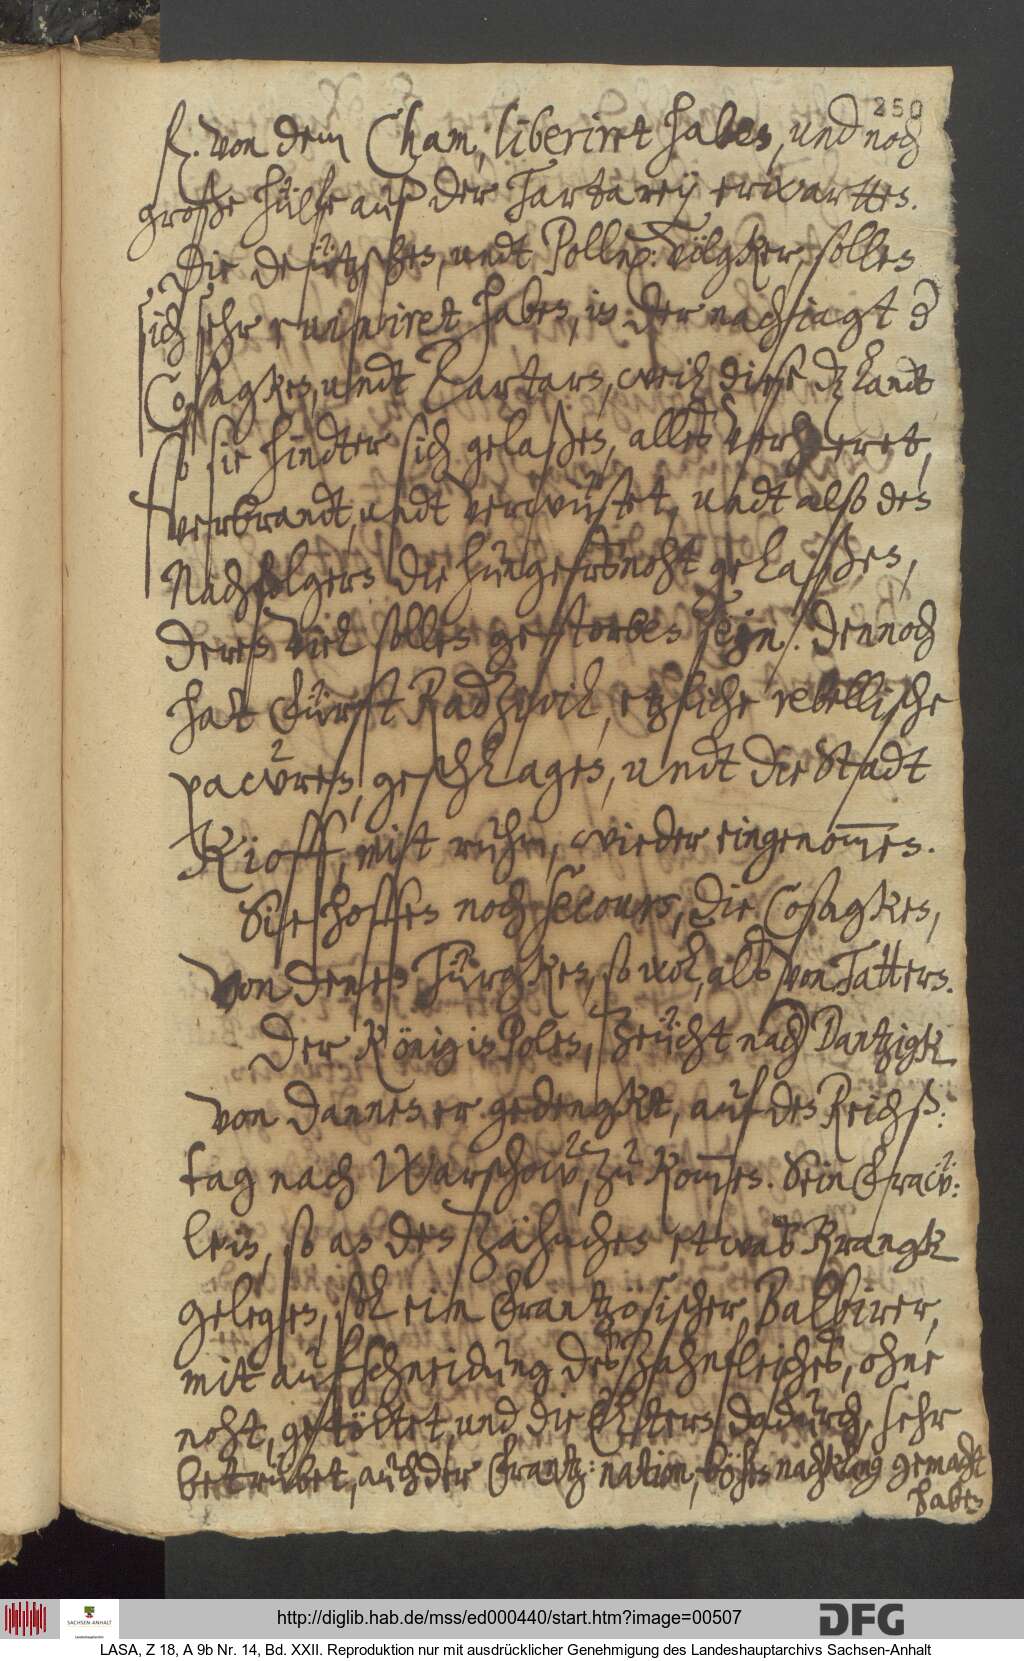 250
von dem Cham, liberiret haben, und noch
große hülfe auß der Tartarey erwartten.
Die deützschen, undt Polln: Völgker, sollen
sich sehr ruiniret haben, in der nachiagt d
Cosagken, undt Tartarn, weil diese dz Landt
so sie hindter sich gelaßen, alles verheeret,
verbrandt, undt verwüstet, undt also den
Nachfolgern die hungersnoht gelaißen,
deren viel sollen gestorben seyn. Dennoch
hat Fürst Radziwil, etzliche rebellische
pauren, geschlagen, undt die Stadt
Kioff, mitt ruhm, wieder eingenom̅en.
Sie hoffen noch secours, die Cosagken,
von denen Türgken, so wol, als von Tattern.
Der König in Polen, zeücht nach Dantzigk
von dannen er gedengkt, auf den Reichß:
tag nach Warschow, zu kom̅en. Sein Fraw:
lein, so an den Zähnchen etwas krangk
gelegen, sol ein Frantzösischer Balbirer,
mit aufschneidung des Zahnfleisches, ohne
noht, getödtet, und die Eltern dadurch, sehr
betrübet, auch der Frantz: nation, bösen nachklang gemacht
haben
http://diglib.hab.de/mss/ed000440/start.htm?image=00507
SACHSEN-ANHALT
Landeshauptarchiv
DFG
LASA, Z 18, A 9b Nr. 14, Bd. XXII. Reproduktion nur mit ausdrücklicher Genehmigung des Landeshauptarchivs Sachsen-Anhalt